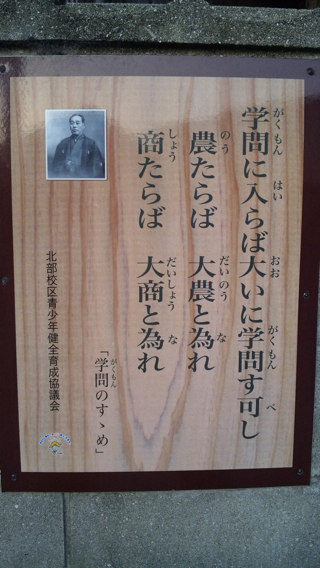 学問に入らば大いに学問す可し
農たらば 大農と為れ
商たらば 大商と為れ
「学問のすゝめ」
北部校区青少年健全育成協議会